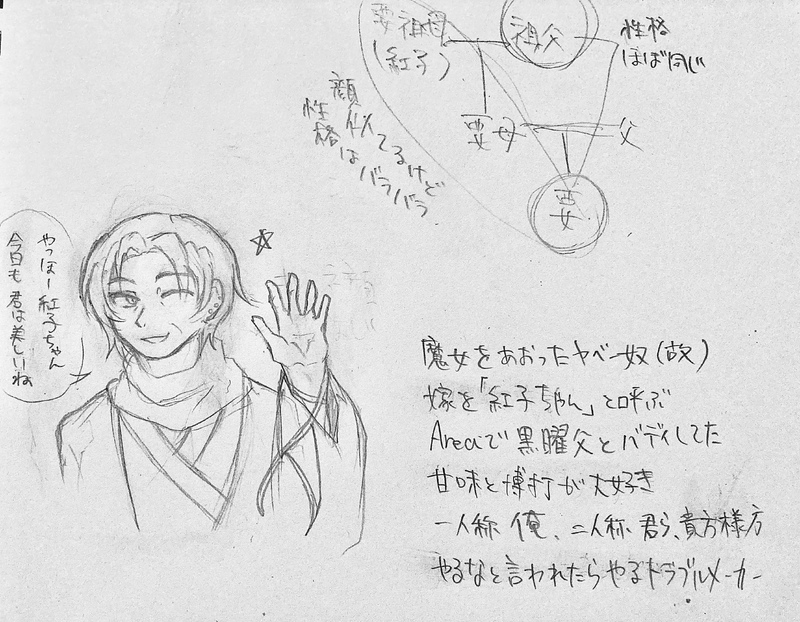 要祖母
(紅子)
祖父
性格
ほぼ同じ
要母
父
要
顔似てるけど
性格はバラバラ
やっほー紅子ちゃん
今日も君は美しいね
魔女をあおったヤベー奴(故)
嫁を「紅子ちゃん」と呼ぶ
Areaで黒曜父とバディしてた
甘味と博打が大好き
一人称 俺、二人称 君ら、貴方様方
やるなと言われたらやるトラブルメーカー